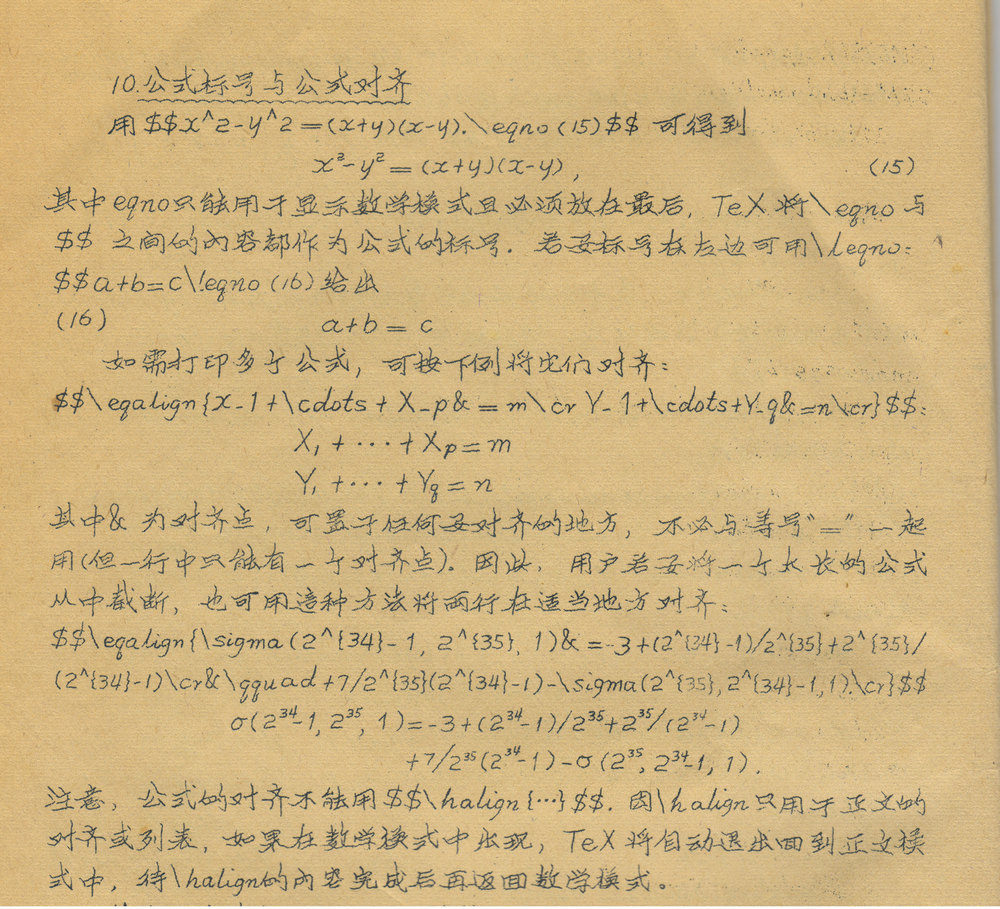 10.公式标号与公式对齐
用$$x^2-y^2=(x+y)(x-y).\eqno(15)$$ 可得到
x²-y²=(x+y)(x-y), (15)
其中eqno只能用于显示数学模式且必须放在最后, TeX将\eqno与
$$ 之间的内容都作为公式的标号. 若要标号在左边可用\leqno:
$$a+b=c\leqno(16)给出
(16) a+b=c
如需打印多个公式, 可按下例将它们对齐:
$$\eqalign{x_1+\cdots+X_p&=m\cr Y_1+\cdots+Y_q&=n\cr}$$:
X₁+···+Xₚ=m
Y₁+···+Y_q=n
其中& 为对齐点, 可置于任何要对齐的地方, 不必与等号“=”一起
用(但一行中只能有一个对齐点). 因此, 用户若要将一个太长的公式
从中截断, 也可用这种方法将两行在适当地方对齐:
$$\eqalign{\sigma(2^{34}-1, 2^{35}, 1)&=-3+(2^{34}-1)/2^{35}+2^{35}/
(2^{34}-1)\cr&\qquad+7/2^{35}(2^{34}-1)-\sigma(2^{35},2^{34}-1,1).\cr}$$
σ(2³⁴-1, 2³⁵, 1)=-3+(2³⁴-1)/2³⁵+2³⁵/(2³⁴-1)
+7/2³⁵(2³⁴-1)-σ(2³⁵, 2³⁴-1, 1).
注意, 公式的对齐不能用$$\halign{···}$$. 因\halign只用于正文的
对齐或列表, 如果在数学模式中出现, TeX将自动退出回到正文模
式中, 待\halign的内容完成后再返回数学模式。